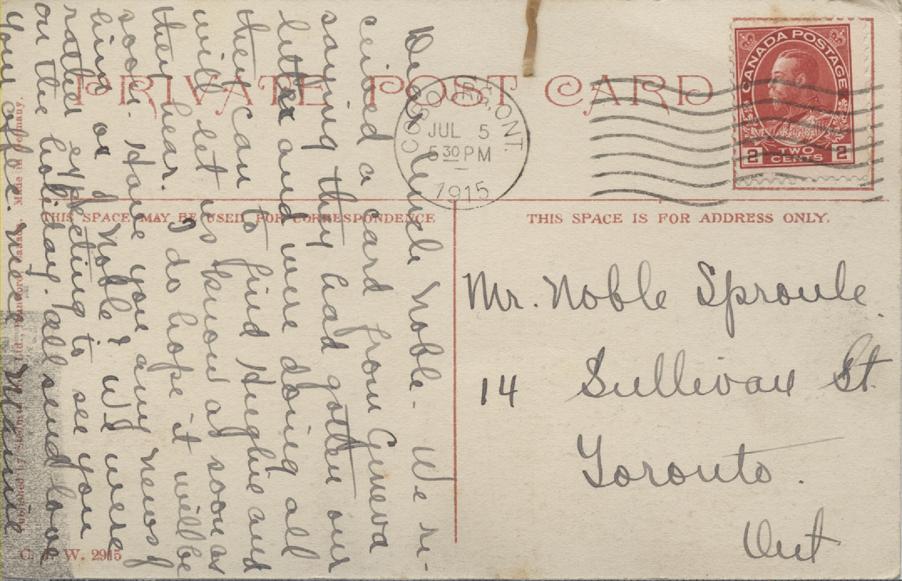 PRIVATE POST CARD
CANADA POSTAGE
2 TWO CENTS 2
JUL 5
5 30 PM
1915
ONT.
THIS SPACE MAY BE USED FOR CORRESPONDENCE
THIS SPACE IS FOR ADDRESS ONLY.
Mr. Noble Sproule.
14 Sullivan St.
Toronto.
Ont
Dear Uncle Noble. We re-
ceived a card from Geneva
saying they had gotten our
letter and were doing all
they can to find Hughie and
will let us know as soon as
they hear. I do hope it will be
soon. Have you any news of
him or Noble? We were
rather expecting to see you
on the holiday. all send love
Your niece
Made in Germany.
W. 2915